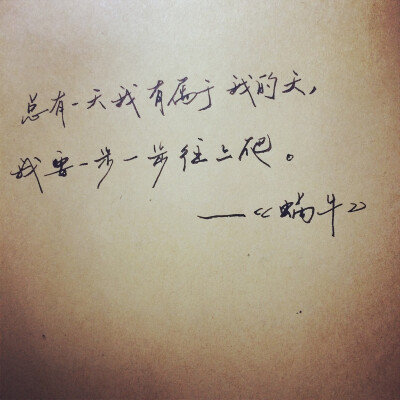 总有一天我有属于我的天,
我要一步一步往上爬。
——《蜗牛》